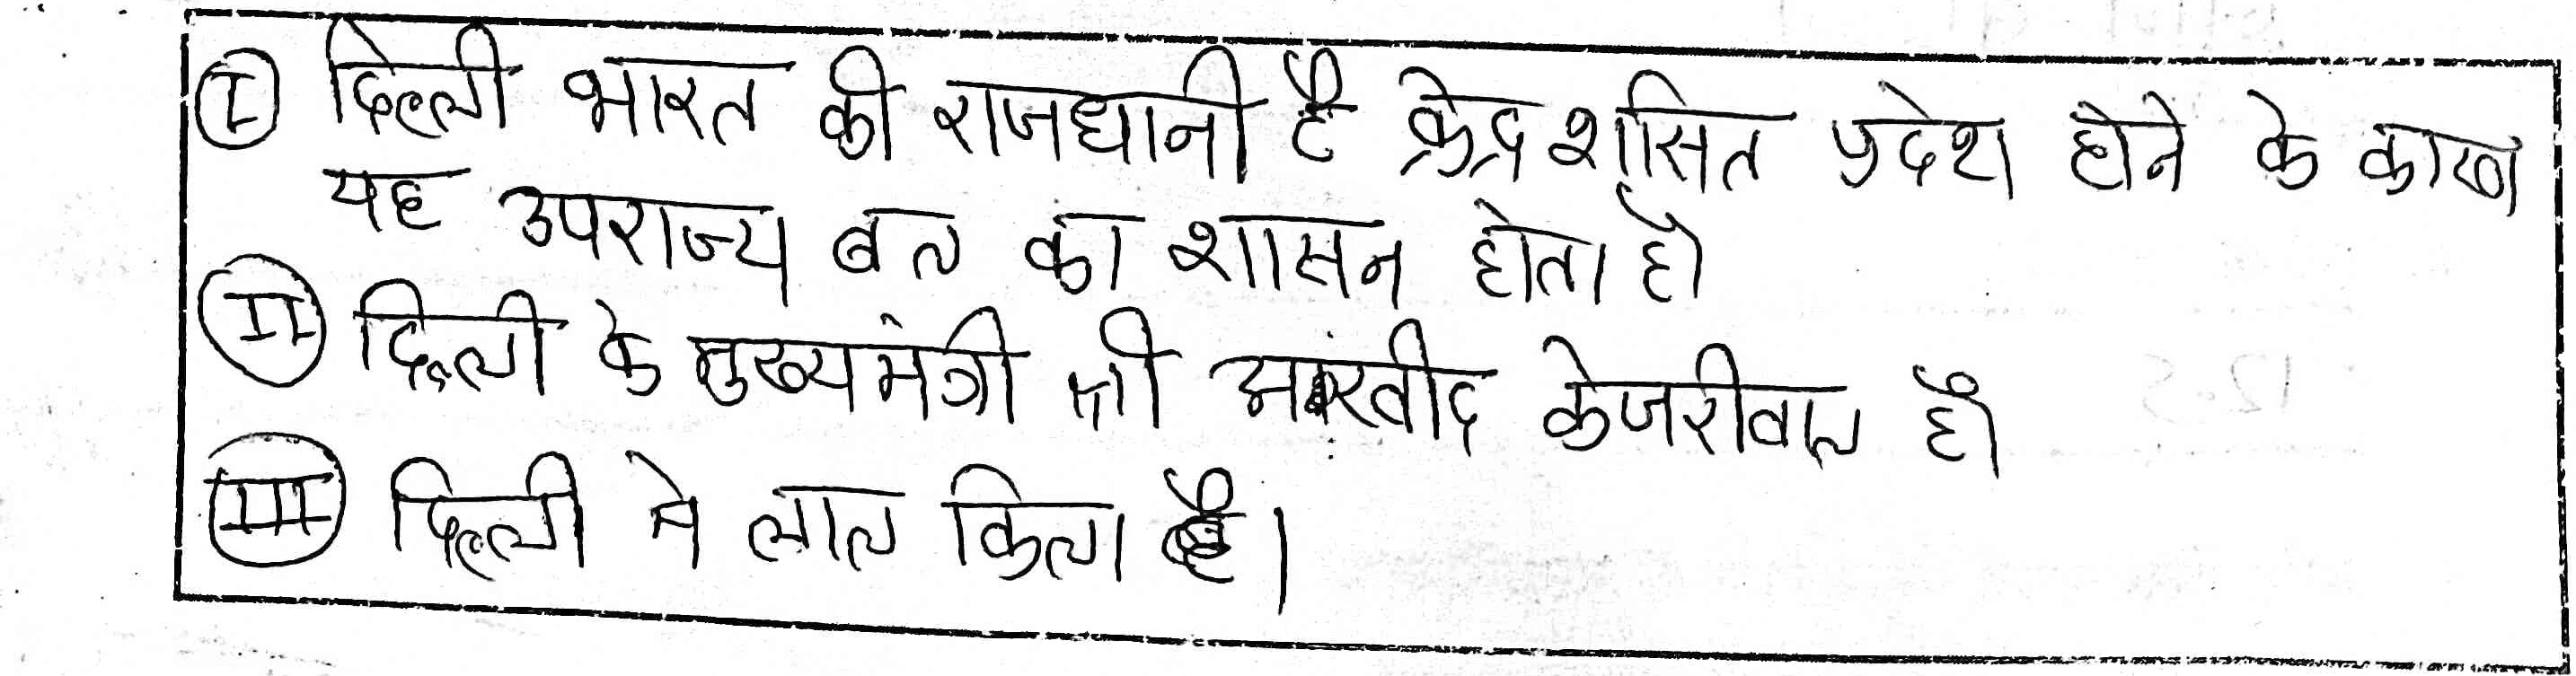 I दिल्ली भारत की राजधानी है केंद्र शासित प्रदेश होने के कारण
यह उपराज्य बल का शासन होता है।
II दिल्ली के मुख्यमंत्री श्री अरवींद केजरीवाल है।
III दिल्ली मे लाल किला है।